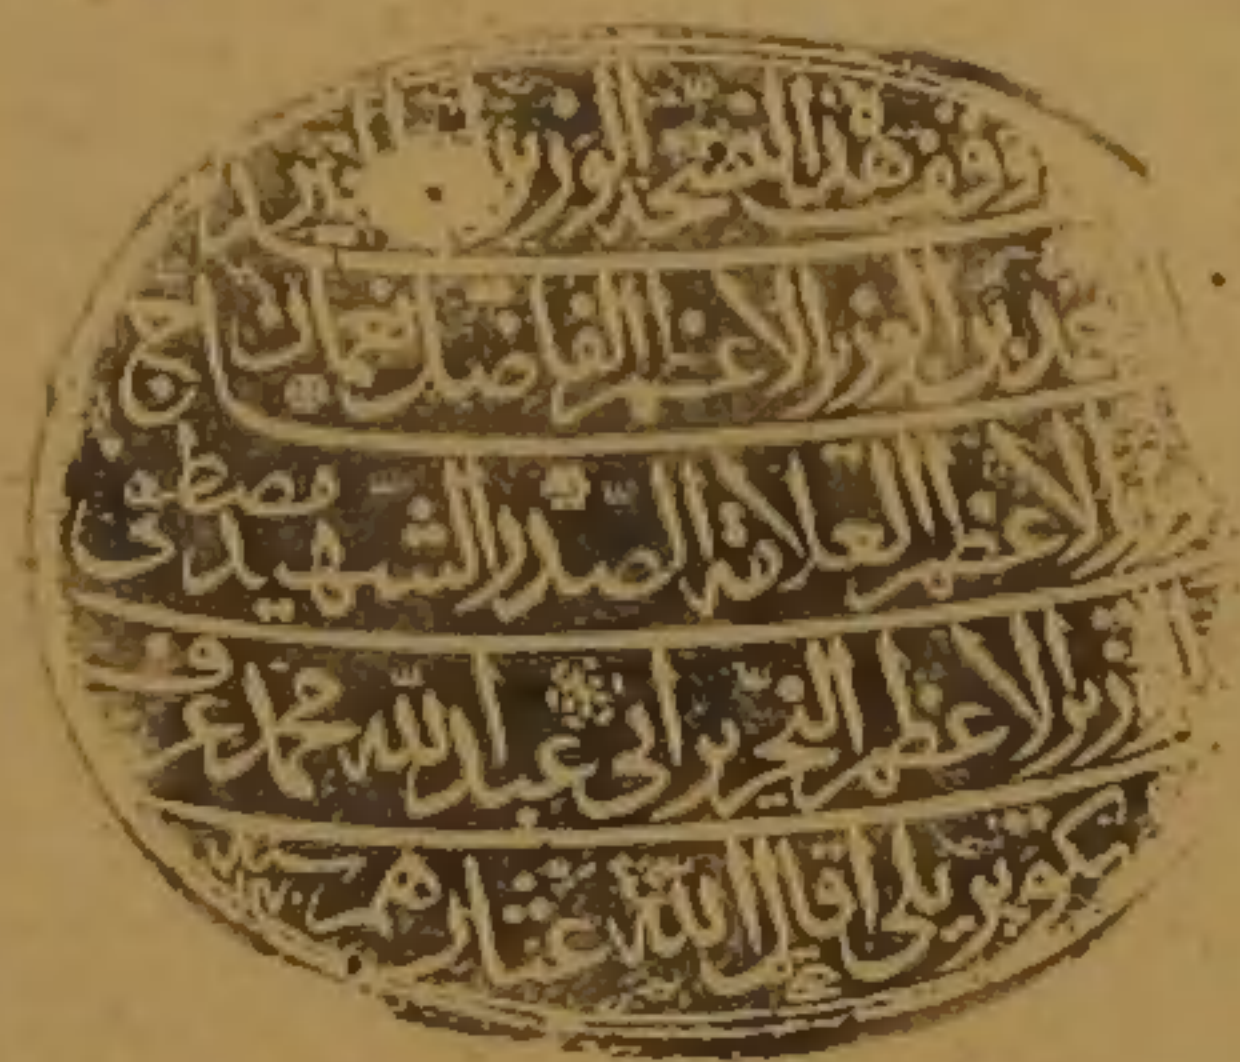 وقف هذا النسخة الوزير
بن الوزير الاعظم الفاضل نعمان ابن
الاعظم العلامة الصدر الشهيد مصطفى بن
الوزير الاعظم النحرير ابى عبد الله محمد عرف
بكوپريلى اقال الله عثارهم